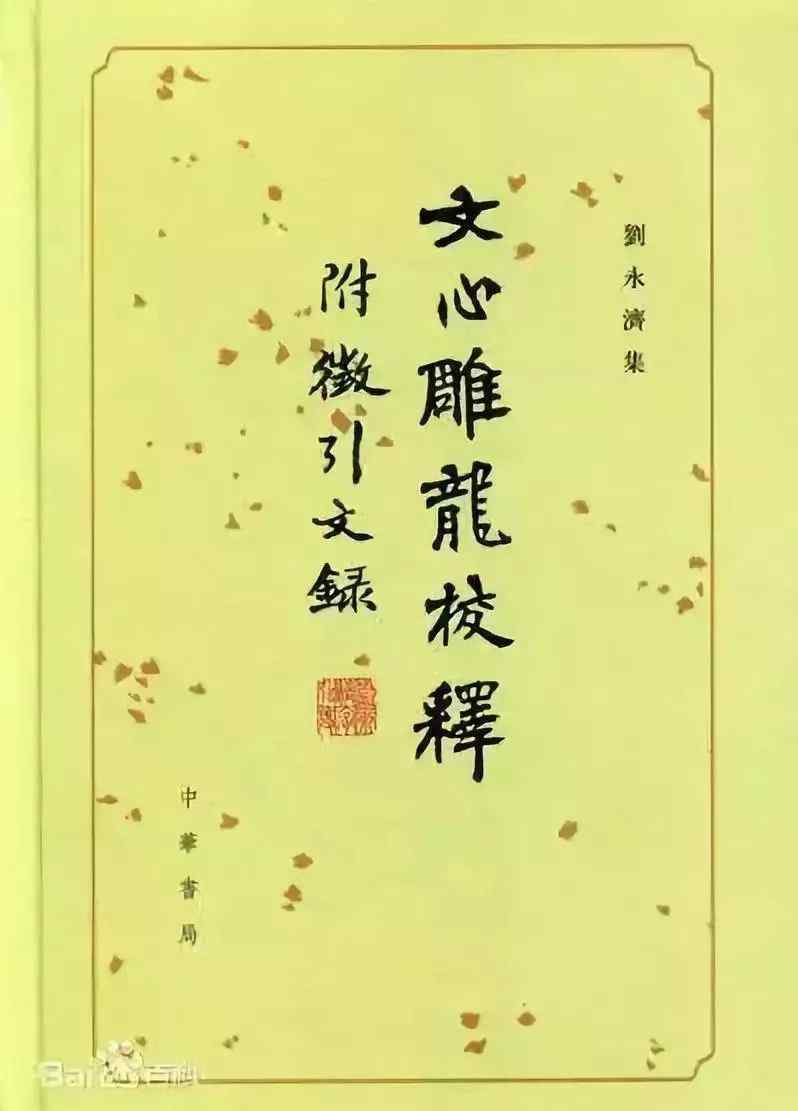 劉永濟集
文心雕龍校釋
附徵引文錄
中華書局
Bai百科